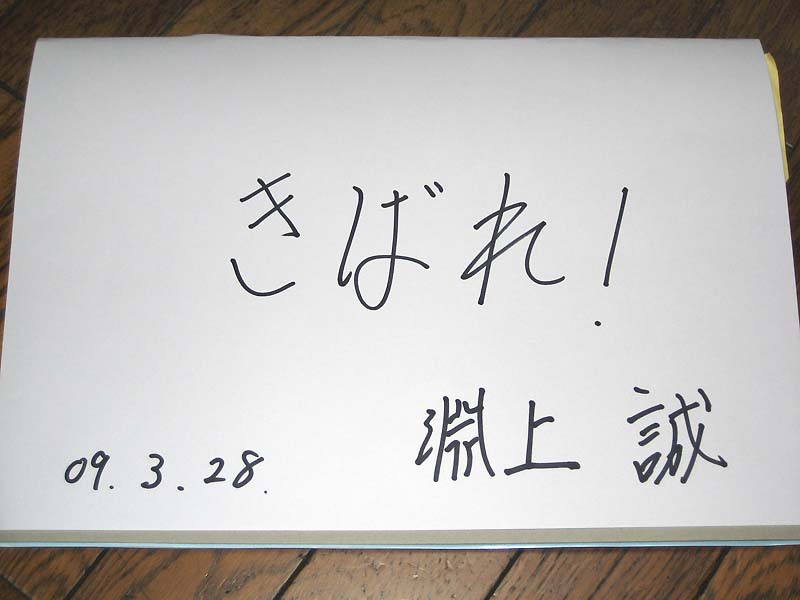 きばれ!
淵上 誠
09.3.28.